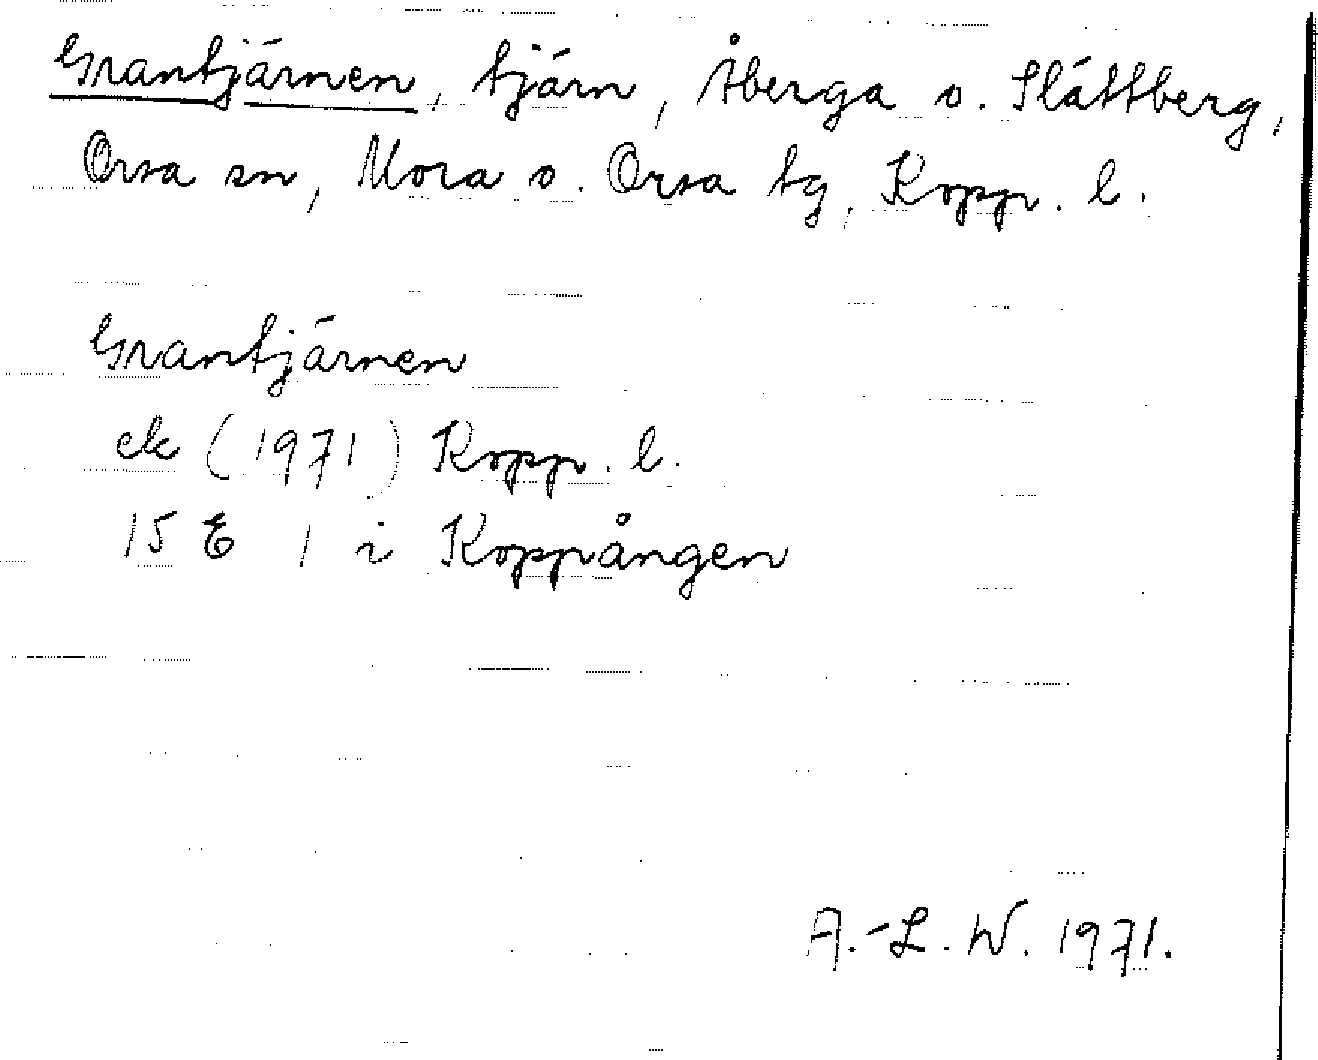 Grantjärnen, tjärn, Åberga o. Slättberg,
Orsa sn, Mora o. Orsa tg, Kopp. l.
Grantjärnen
ek (1971) Kopp. l.
15 E 1 i Koppången
A.-L. W. 1971.